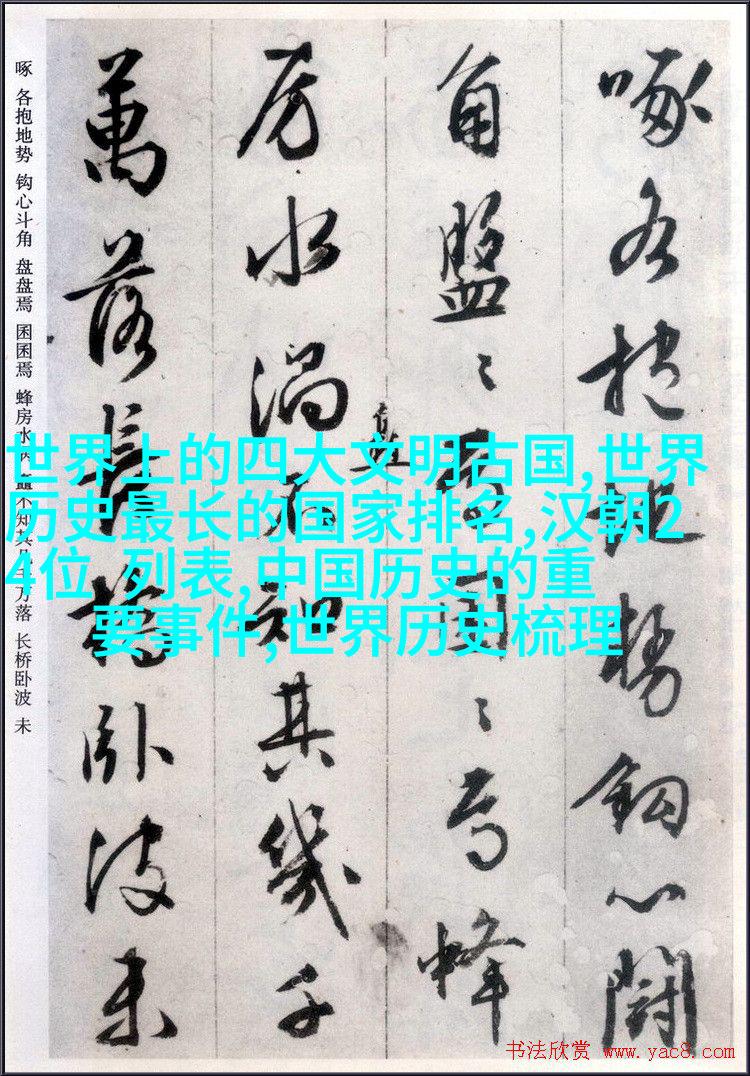 啄各抱地勢鈎心鬪
角盤〻焉囷〻焉蜂
房水渦矗不知其幾千
萬落長橋卧波未
啄 各抱地势 钩心斗角 盘盘焉 囷囷焉 蜂房水涡 矗不知其几千万落 长桥卧波 未
世界上的四大文明古国,世界
历史最长的国家排名,汉朝2
4位 列表,中国历史的重
要事件,世界历史梳理
书法欣赏 www.yac8.com